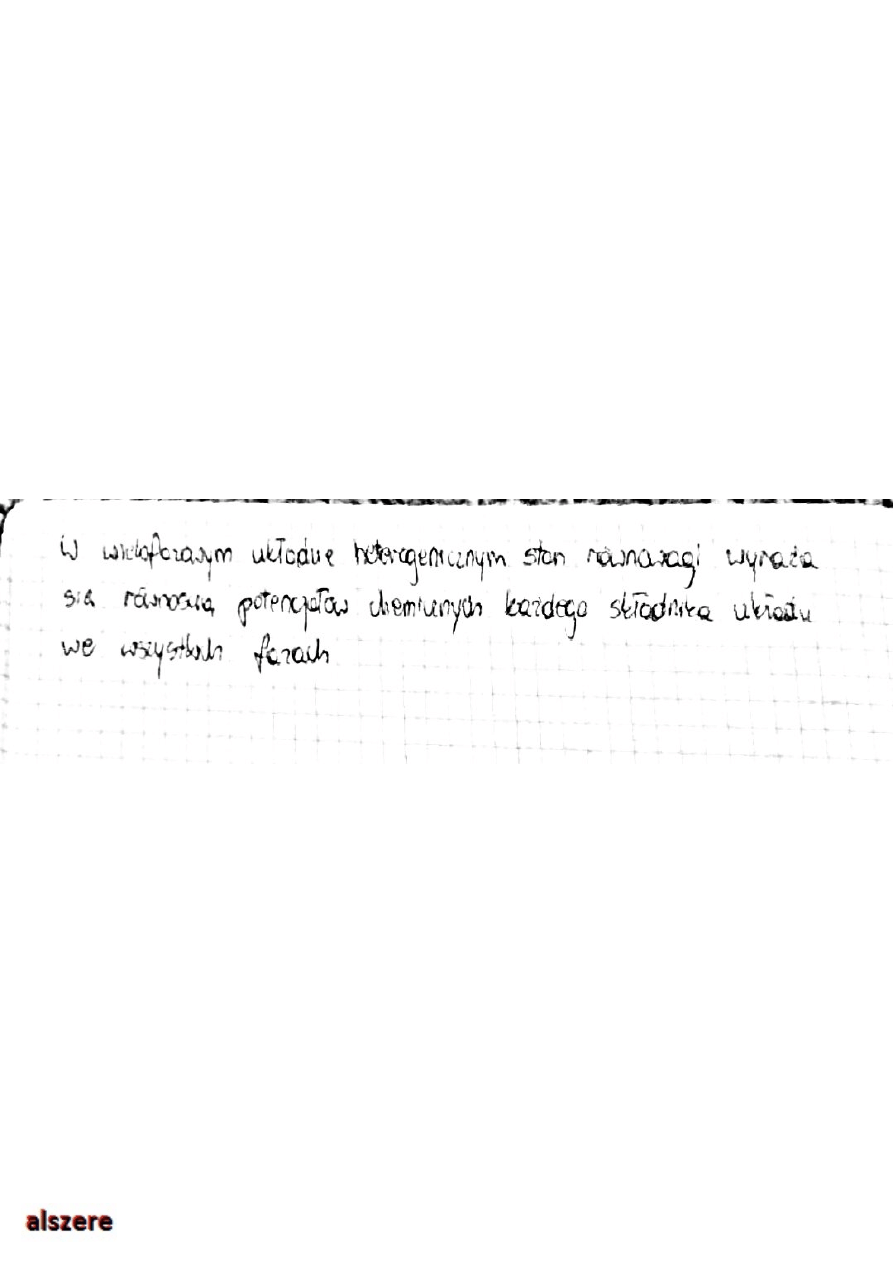 W wielofazowym układzie heterogenicznym stan równowagi wyraża
się równością potencjałów chemicznych każdego składnika układu
we wszystkich fazach
alszere